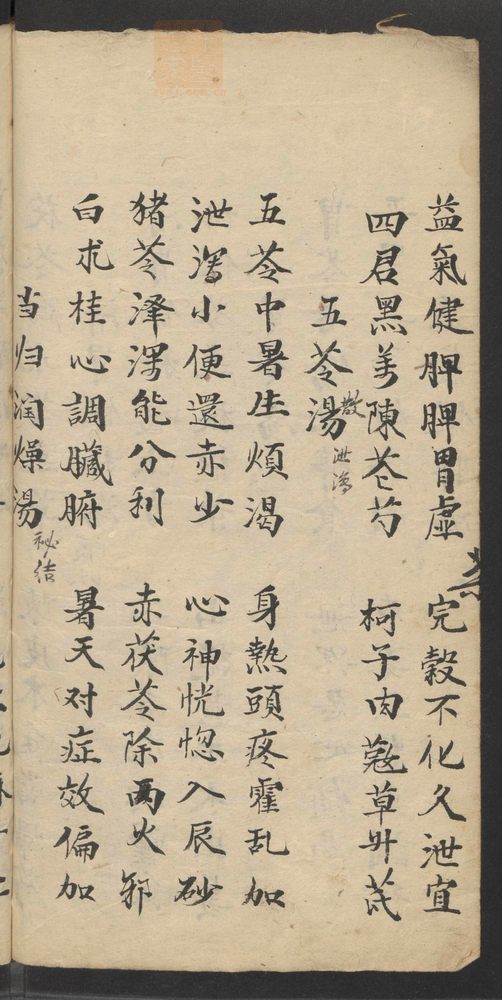 益氣健脾脾胃虛 完穀不化久泄宜
四君黑姜陳苍芍 柯子肉蔻草升芪
五苓湯散 泄瀉
五苓中暑生煩渴 身熱頭疼霍乱加
泄瀉小便還赤少 心神恍惚入辰砂
猪苓澤瀉能分利 赤茯苓除両火邪
白朮桂心調臟腑 暑天对症效偏加
当归润燥湯 秘结